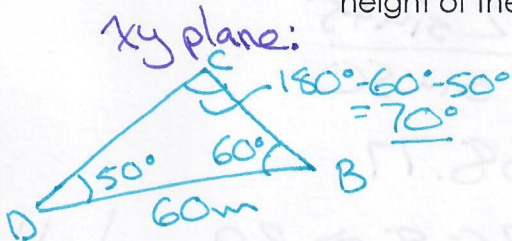 height of the
xy plane:
C
180°-60°-50°
= 70°
50°
60°
B
60m
D